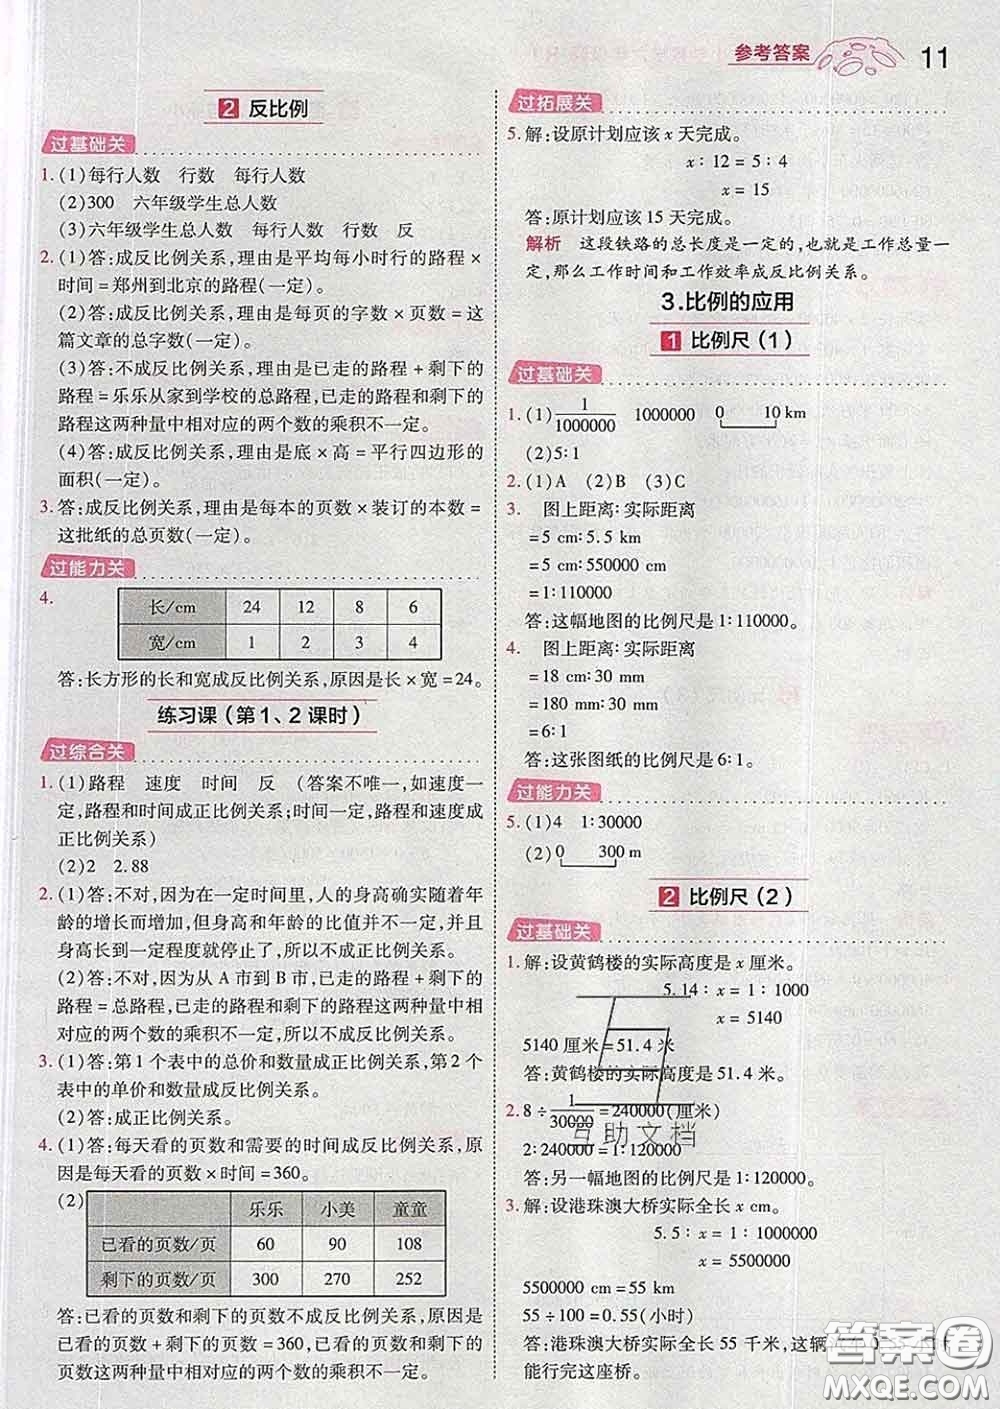 参考答案 11
2 反比例
过基础关
1.(1)每行人数 行数 每行人数
(2)300 六年级学生总人数
(3)六年级学生总人数 每行人数 行数 反
2.(1)答:成反比例关系,理由是平均每小时行的路程×
时间=郑州到北京的路程(一定)。
(2)答:成反比例关系,理由是每页的字数×页数=这
篇文章的总字数(一定)。
(3)答:不成反比例关系,理由是已走的路程+剩下的
路程=乐乐从家到学校的总路程,已走的路程和剩下的
路程这两种量中相对应的两个数的乘积不一定。
(4)答:成反比例关系,理由是底×高=平行四边形的
面积(一定)。
3.答:成反比例关系,理由是每本的页数×装订的本数=
这批纸的总页数(一定)。
过能力关
4.
长/cm 24 12 8 6
宽/cm 1 2 3 4
答:长方形的长和宽成反比例关系,原因是长×宽=24。
练习课(第1、2课时)
过综合关
1.(1)路程 速度 时间 反 (答案不唯一,如速度一
定,路程和时间成正比例关系;时间一定,路程和速度成
正比例关系)
(2)2 2.88
2.(1)答:不对,因为在一定时间里,人的身高确实随着年
龄的增长而增加,但身高和年龄的比值并不一定,并且
身高长到一定程度就停止了,所以不成正比例关系。
(2)答:不对,因为从A市到B市,已走的路程+剩下的
路程=总路程,已走的路程和剩下的路程这两种量中相
对应的两个数的乘积不一定,所以不成反比例关系。
3.(1)答:第1个表中的总价和数量成正比例关系,第2个
表中的单价和数量成反比例关系。
(2)答:成正比例关系。
4.(1)答:每天看的页数和需要的时间成反比例关系,原
因是每天看的页数×时间=360。
(2)
乐乐 小美 童童
已看的页数/页 60 90 108
剩下的页数/页 300 270 252
答:已看的页数和剩下的页数不成反比例关系,原因是
已看的页数+剩下的页数=360,已看的页数和剩下的
页数这两种量中相对应的两个数的乘积不一定。
过拓展关
5.解:设原计划应该x天完成。
x∶12=5∶4
x=15
答:原计划应该15天完成。
解析 这段铁路的总长度是一定的,也就是工作总量一
定,那么工作时间和工作效率成反比例关系。
3.比例的应用
1 比例尺(1)
过基础关
1.(1)1/1000000 1000000 0 10 km
(2)5∶1
2.(1)A (2)B (3)C
3. 图上距离∶实际距离
=5 cm∶5.5 km
=5 cm∶550000 cm
=1∶110000
答:这幅地图的比例尺是1∶110000。
4. 图上距离∶实际距离
=18 cm∶30 mm
=180 mm∶30 mm
=6∶1
答:这张图纸的比例尺是6∶1。
过能力关
5.(1)4 1∶30000
(2)0 300 m
2 比例尺(2)
过基础关
1.解:设黄鹤楼的实际高度是x厘米。
5.14∶x=1∶1000
x=5140
5140厘米=51.4米
答:黄鹤楼的实际高度是51.4米。
2.8÷1/30000=240000(厘米)
2∶240000=1∶120000
答:另一幅地图的比例尺是1∶120000。
3.解:设港珠澳大桥实际全长x cm。
5.5∶x=1∶1000000
x=5500000
5500000 cm=55 km
55÷100=0.55(小时)
答:港珠澳大桥实际全长55千米,这辆
能行完这座桥。
互助文档
答案圈
MXQE.COM